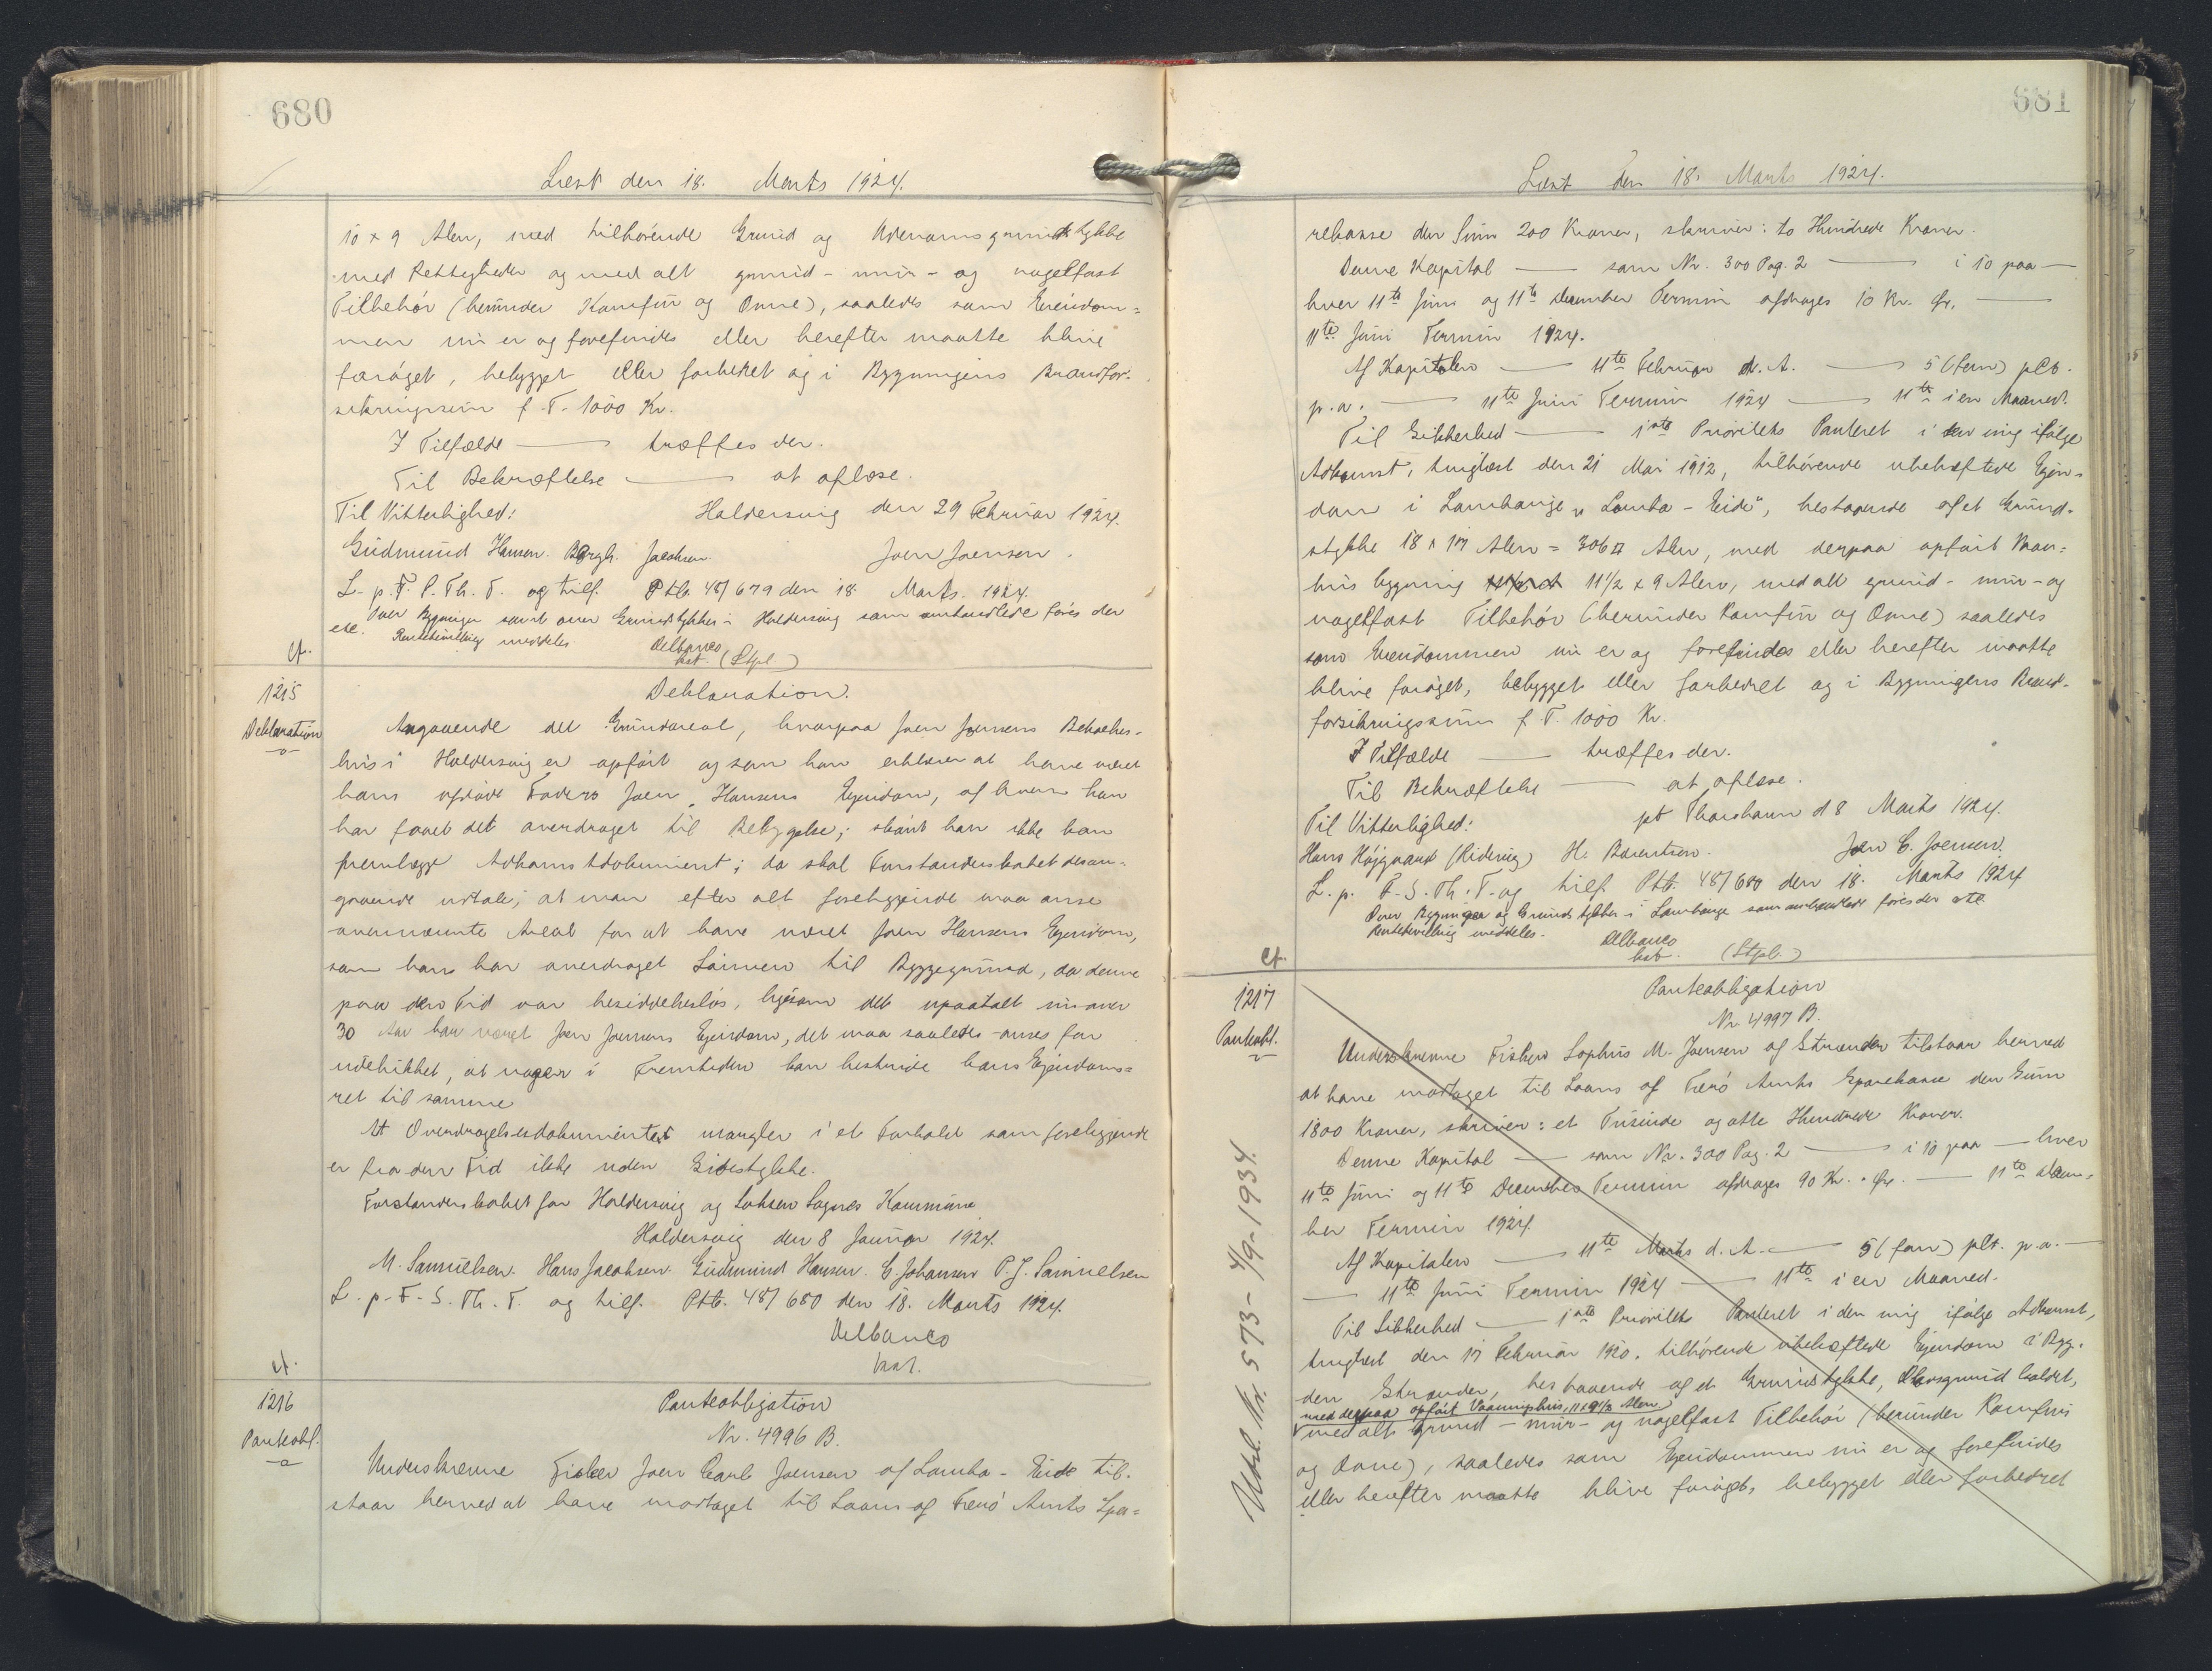 680
Læst den 18. Marts 1924.
10 x 9 Alen, med tilhørende Grund og Udenomsgrundstykke
med Rettigheder og med alt grund- mur- og nagelfast
Tilbehør (herunder Komfur og Ovne), saaledes som Ejendom=
men nu er og forefindes eller herefter maatte blive
forøget, bebygget eller forbedret og i Bygningens Brandfor-
sikringssum f. T. 1000 Kr.
I Tilfælde — træffes der.
Til Bekræftelse — at aflæse.
Til Vitterlighed: Haldersvig den 29 Februar 1924.
Gudmund Hansen. Jacobsen. Joen Joensen.
L. p. F. S. Th. T. og tilf. Ptb. 48/679 den 18. Marts 1924.
Over Bygninger samt over Grundstykker i Haldersvig som omhandlede føres der
etc. Rentebevilling meddeles.
Delbanco
kst. (Stpl.)
cf.
1215
Deklaration
Deklaration.
Angaaende det Grundareal, hvorpaa Joen Joensens Beboelses-
hus i Haldersvig er opført og som han erklærer at have været
hans afdøde Faders Joen Hansens Ejendom, af hvem han
har faaet det overdraget til Bebyggelse; skønt han ikke kan
fremlægge Adkomstdokument; da skal Forstanderskabet desan-
gaaende udtale; at man efter alt foreliggende maa anse
ovennævnte Areal for at have været Joen Hansens Ejendom,
som han har overdraget Sønnen til Byggegrund, da denne
paa den Tid var besiddelsesløs, ligesom det upaatalt nu over
30 Aar har været Joen Joensens Ejendom, det maa saaledes anses for
udelukket, at nogen i Fremtiden kan bestride hans Ejendoms=
ret til samme
At Overdragelsesdokumentet mangler i et Forhold som foreliggende
er fra den Tid ikke uden Sidestykke.
Forstanderskabet for Haldersvig og Saksen Sognes Kommune
Haldersvig den 8 Januar 1924.
M. Samuelsen. Hans Jacobsen. Gudmund Hansen. C. Johansen P. J. Samuelsen
L. p. F. S. Th. T. og tilf. Ptb. 48/680 den 18. Marts 1924.
Delbanco
kst.
cf.
1216
Panteobl.
Panteobligation
Nr. 4996 B.
Underskrevne Fisker Joen Carl Joensen af Lamba - Eide til-
staar herved at have modtaget til Laans af Færø Amts Spa=
681
Læst den 18. Marts 1924.
rekasse den Sum 200 Kroner, skriver: to Hundrede Kroner.
Denne Kapital — som Nr. 300 Pag. 2 — i 10 paa —
hver 11te Juni og 11te December Termin afdrages 10 Kr. Fr. —
11te Juni Termin 1924.
Af Kapitalen — 11te Februar d. A. — 5 (fem) pCt.
p. a. — 11te Juni Termin 1924 — 11te i en Maaned.
Til Sikkerhed — 1ste Prioritets Panteret i den mig ifølge
Adkomst, tinglæst den 21 Mai 1912, tilhørende ubehæftede Ejen=
dom i Lambavige „Lamba - Eide", bestaaende af et Grund-
stykke 18 x 17 Alen = 306 □ Alen, med derpaa opført Vaan=
hus bygning 11½ x 9 Alen, med alt grund- mur- og
nagelfast Tilbehør (herunder Komfur og Ovne) saaledes
som Ejendommen nu er og forefindes eller herefter maatte
blive forøget, bebygget eller forbedret og i Bygningens Brand-
forsikringssum f. T. 1000 Kr.
I Tilfælde — træffes der.
Til Bekræftelse — at aflæse.
pt Thorshavn d 8 Marts 1924.
Til Vitterlighed:
Hans Højgaard (Ridevig) H. Joen C. Joensen.
L. p. F. S. Th. T. og tilf. Ptb. 48/680 den 18. Marts 1924
Over Bygninger og Grundstykker i Lambavige som omhandlede føres der etc
Rentebevilling meddeles.
Delbanco
kst. (Stpl.)
cf.
1217
Panteobl.
Panteobligation
Nr. 4997 B.
Underskrevne Fisker Sophus M. Joensen af Strænder tilstaar herved
at have modtaget til Laans af Færø Amts Sparekasse den Sum
1800 Kroner, skriver: et Tusinde og otte Hundrede Kroner.
Denne Kapital — som Nr. 300 Pag. 2 — i 10 paa — hver
11te Juni og 11te December Termin afdrages 90 Kr. Fr. — 11te Decem-
ber Termin 1924.
Af Kapitalen — 11te Marts d. A. — 5 (fem) pCt. p. a. —
— 11te Juni Termin 1924 — 11te i en Maaned.
Til Sikkerhed — 1ste Prioritets Panteret i den mig ifølge Adkomst,
tinglæst den 17 Februar 1920, tilhørende ubehæftede Ejendom i Byg-
den Strænder, bestaaende af et Grundstykke, kaldet,
med derpaa opført Vaaningshus, 11 x 9½ Alen
med alt grund- mur- og nagelfast Tilbehør (herunder Komfur
og Ovne), saaledes som Ejendommen nu er og forefindes
eller herefter maatte blive forøget, bebygget eller forbedret
Udsl. Nr. 573 - 4/9 - 1934.